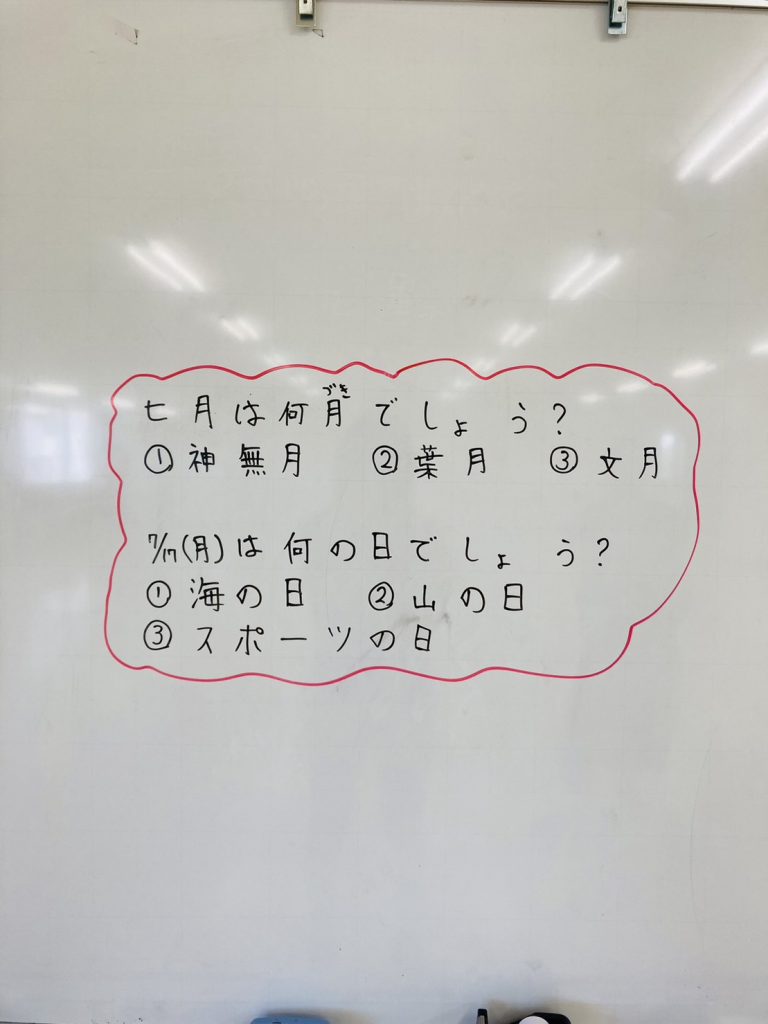 七月は何月でしょう?
づき
①神無月 ②葉月 ③文月
7/17(月)は何の日でしょう?
①海の日 ②山の日
③スポーツの日